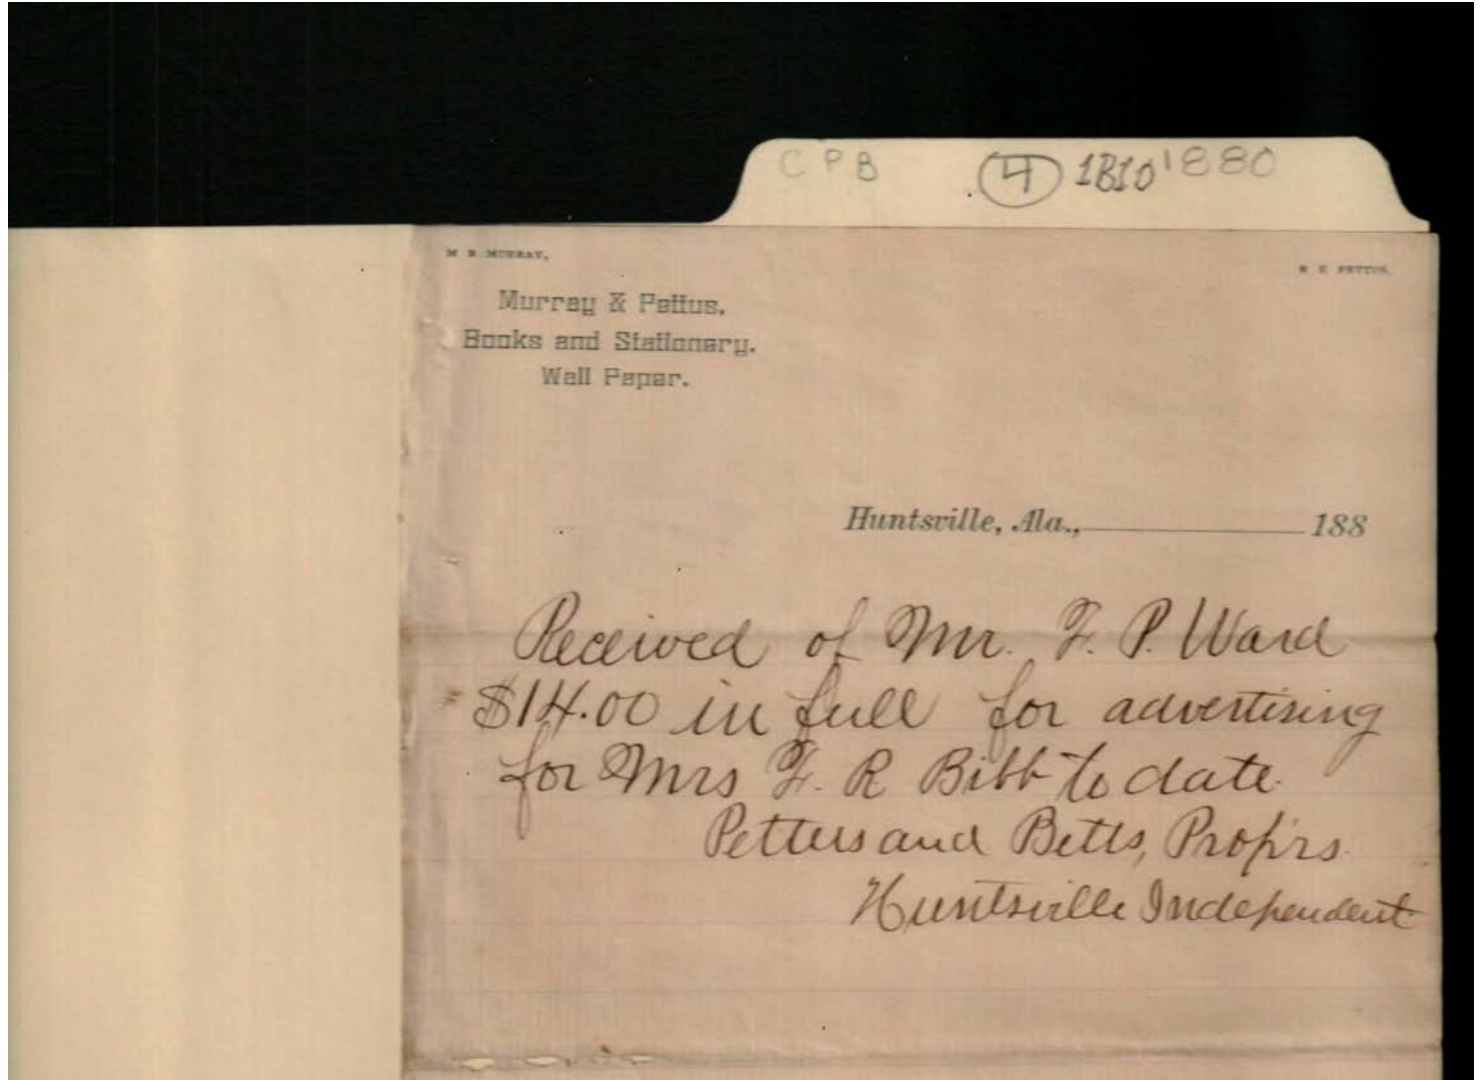 CPB 4 1B10 1880
M. R. MURRAY,
R. E. PETTUS.
Murray & Pettus,
Books and Stationery.
Wall Paper.
Huntsville, Ala., 188
Received of Mr. F. P. Ward
$14.00 in full for advertising
for Mrs F. R Bibb to date.
Pettus and Betts, Prop'rs.
Huntsville Independent